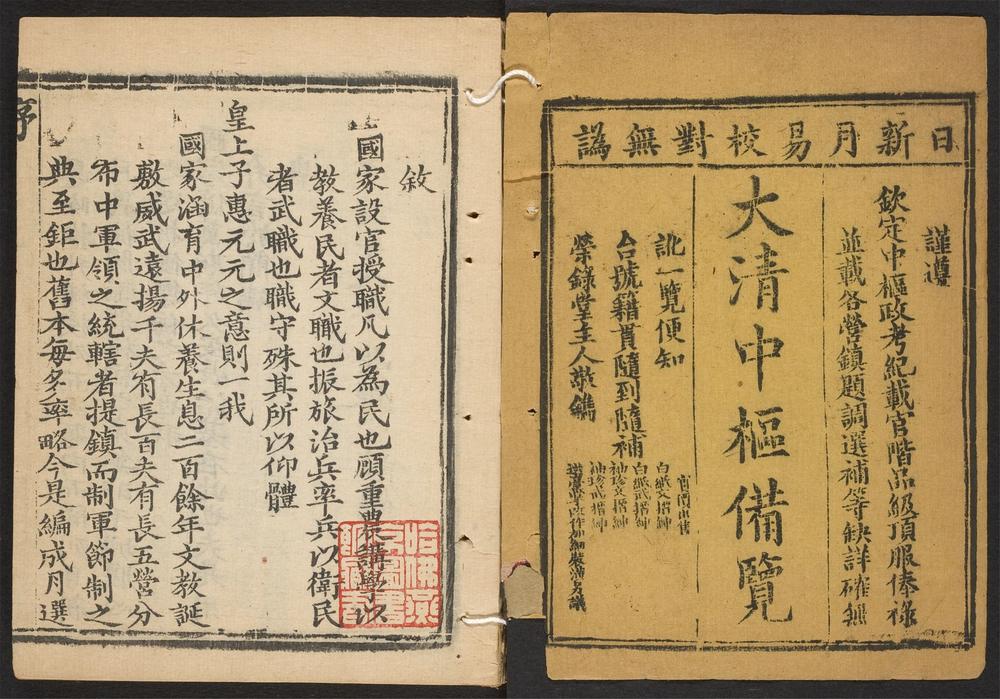 日新月易校對無譌
謹遵
欽定中樞政考紀載官階品級頂服俸祿
並載各營鎮題調選補等缺詳確無
大清中樞備覽
訛一覽便知
台號籍貫隨到隨補
榮錄堂主人敬鐫
白紙文搢紳
白紙武搢紳
袖珍文搢紳
袖珍武搢紳
敘
國家設官授職凡以為民也顧重農講學以
教養民者文職也振旅治兵率兵以衛民
者武職也職守殊其所以仰體
皇上子惠元元之意則一我
國家涵育中外休養生息二百餘年文教誕
敷威武遠揚千夫有長百夫有長五營分
布中軍領之統轄者提鎮而制軍節制之
典至鉅也舊本每多率略今是編成月選
序
哈佛燕
京圖書
館藏書